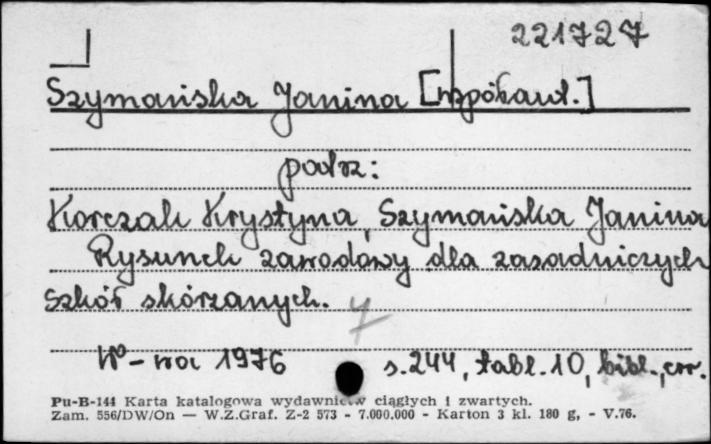 221727
Szymańska Janina [współaut.]
patrz:
Korczak Krystyna, Szymańska Janina
Rysunek zawodowy dla zasadniczych
szkół skórzanych.
W-wa 1976 s. 244, tabl. 10, bibl., err.
Pu-B-144 Karta katalogowa wydawnictw ciągłych i zwartych.
Zam. 556/DW/On — W.Z.Graf. Z-2 573 - 7.000.000 - Karton 3 kl. 180 g, - V.76.